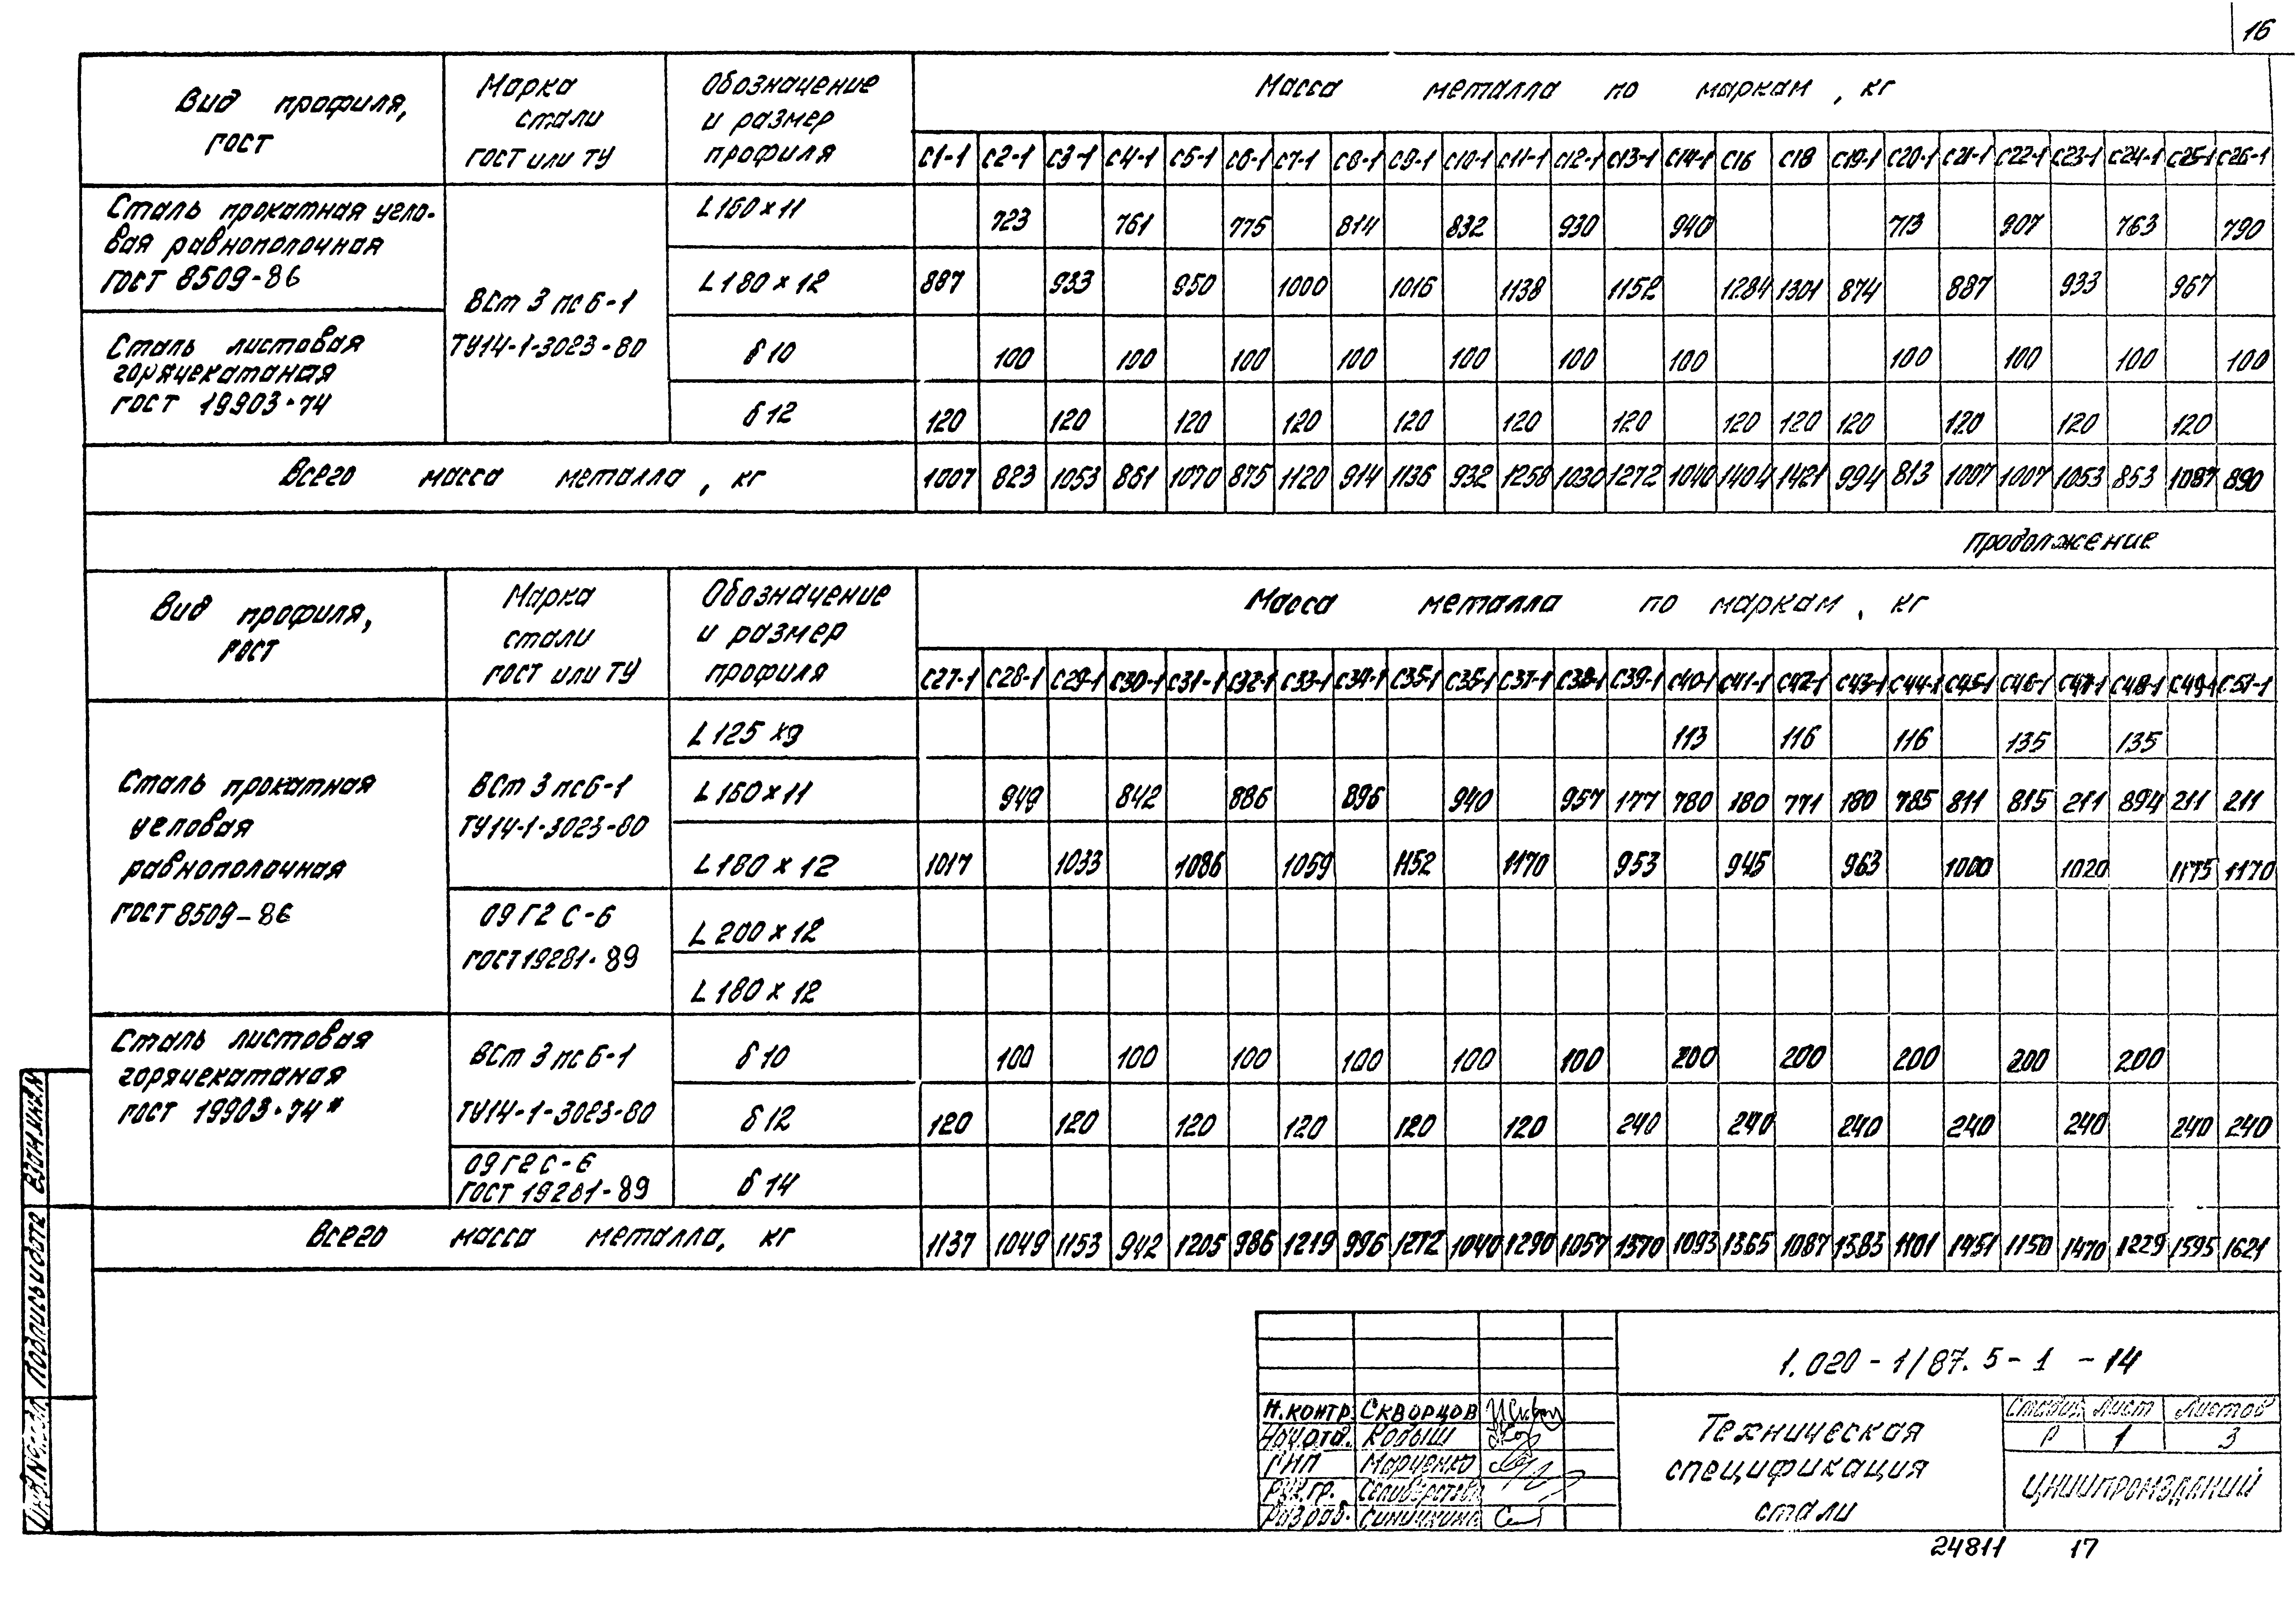 16
Вид профиля, ГОСТ
Марка стали ГОСТ или ТУ
Обозначение и размер профиля
Масса металла по маркам, кг
С1-1 С2-1 С3-1 С4-1 С5-1 С6-1 С7-1 С8-1 С9-1 С10-1 С11-1 С12-1 С13-1 С14-1 С16 С18 С19-1 С20-1 С21-1 С22-1 С23-1 С24-1 С25-1 С26-1
Сталь прокатная угло-
вая равнополочная
ГОСТ 8509-86
ВСт 3 пс 6-1
ТУ14-1-3023-80
L 160 × 11 723 761 775 814 832 930 940 713 907 763 790
L 180 × 12 887 933 950 1000 1016 1138 1152 1284 1301 874 887 933 967
Сталь листовая
горячекатаная
ГОСТ 19903-74
δ 10 100 100 100 100 100 100 100 100 100 100 100
δ 12 120 120 120 120 120 120 120 120 120 120 120 120 120
Всего масса металла, кг 1007 823 1053 861 1070 875 1120 914 1136 932 1258 1030 1272 1040 1404 1421 994 813 1007 1007 1053 853 1087 890
продолжение
Вид профиля, ГОСТ
Марка стали ГОСТ или ТУ
Обозначение и размер профиля
Масса металла по маркам, кг
С27-1 С28-1 С29-1 С30-1 С31-1 С32-1 С33-1 С34-1 С35-1 С36-1 С37-1 С38-1 С39-1 С40-1 С41-1 С42-1 С43-1 С44-1 С45-1 С46-1 С47-1 С48-1 С49-1 С51-1
Сталь прокатная
угловая
равнополочная
ГОСТ 8509-86
ВСт 3 пс 6-1
ТУ14-1-3023-80
L 125 × 9 113 116 116 135 135
L 160 × 11 949 842 886 896 940 957 177 780 180 771 180 785 811 815 211 894 211 211
L 180 × 12 1017 1033 1086 1059 1152 1170 953 945 963 1000 1020 1175 1170
09Г2С-6
ГОСТ 19281-89
L 200 × 12
L 180 × 12
Сталь листовая
горячекатаная
ГОСТ 19903-74*
ВСт 3 пс 6-1
ТУ14-1-3023-80
δ 10 100 100 100 100 100 100 200 200 200 200 200
δ 12 120 120 120 120 120 120 240 240 240 240 240 240 240
09Г2С-6
ГОСТ 19281-89
δ 14
Всего масса металла, кг 1137 1049 1153 942 1205 986 1219 996 1272 1040 1290 1057 1370 1093 1365 1087 1383 1101 1451 1150 1470 1229 1595 1621
Инв.№подл. Подпись и дата Взам.инв.№
1.020-1/87.5-1 -14
Н.контр. Скворцов
Нач.отд. Кодыш
ГИП Марченко
Рук.гр.
Разраб. Синичкина
Техническая
спецификация
стали
Стадия Лист Листов
Р 1 3
ЦНИИПРОМЗДАНИЙ
24811 17